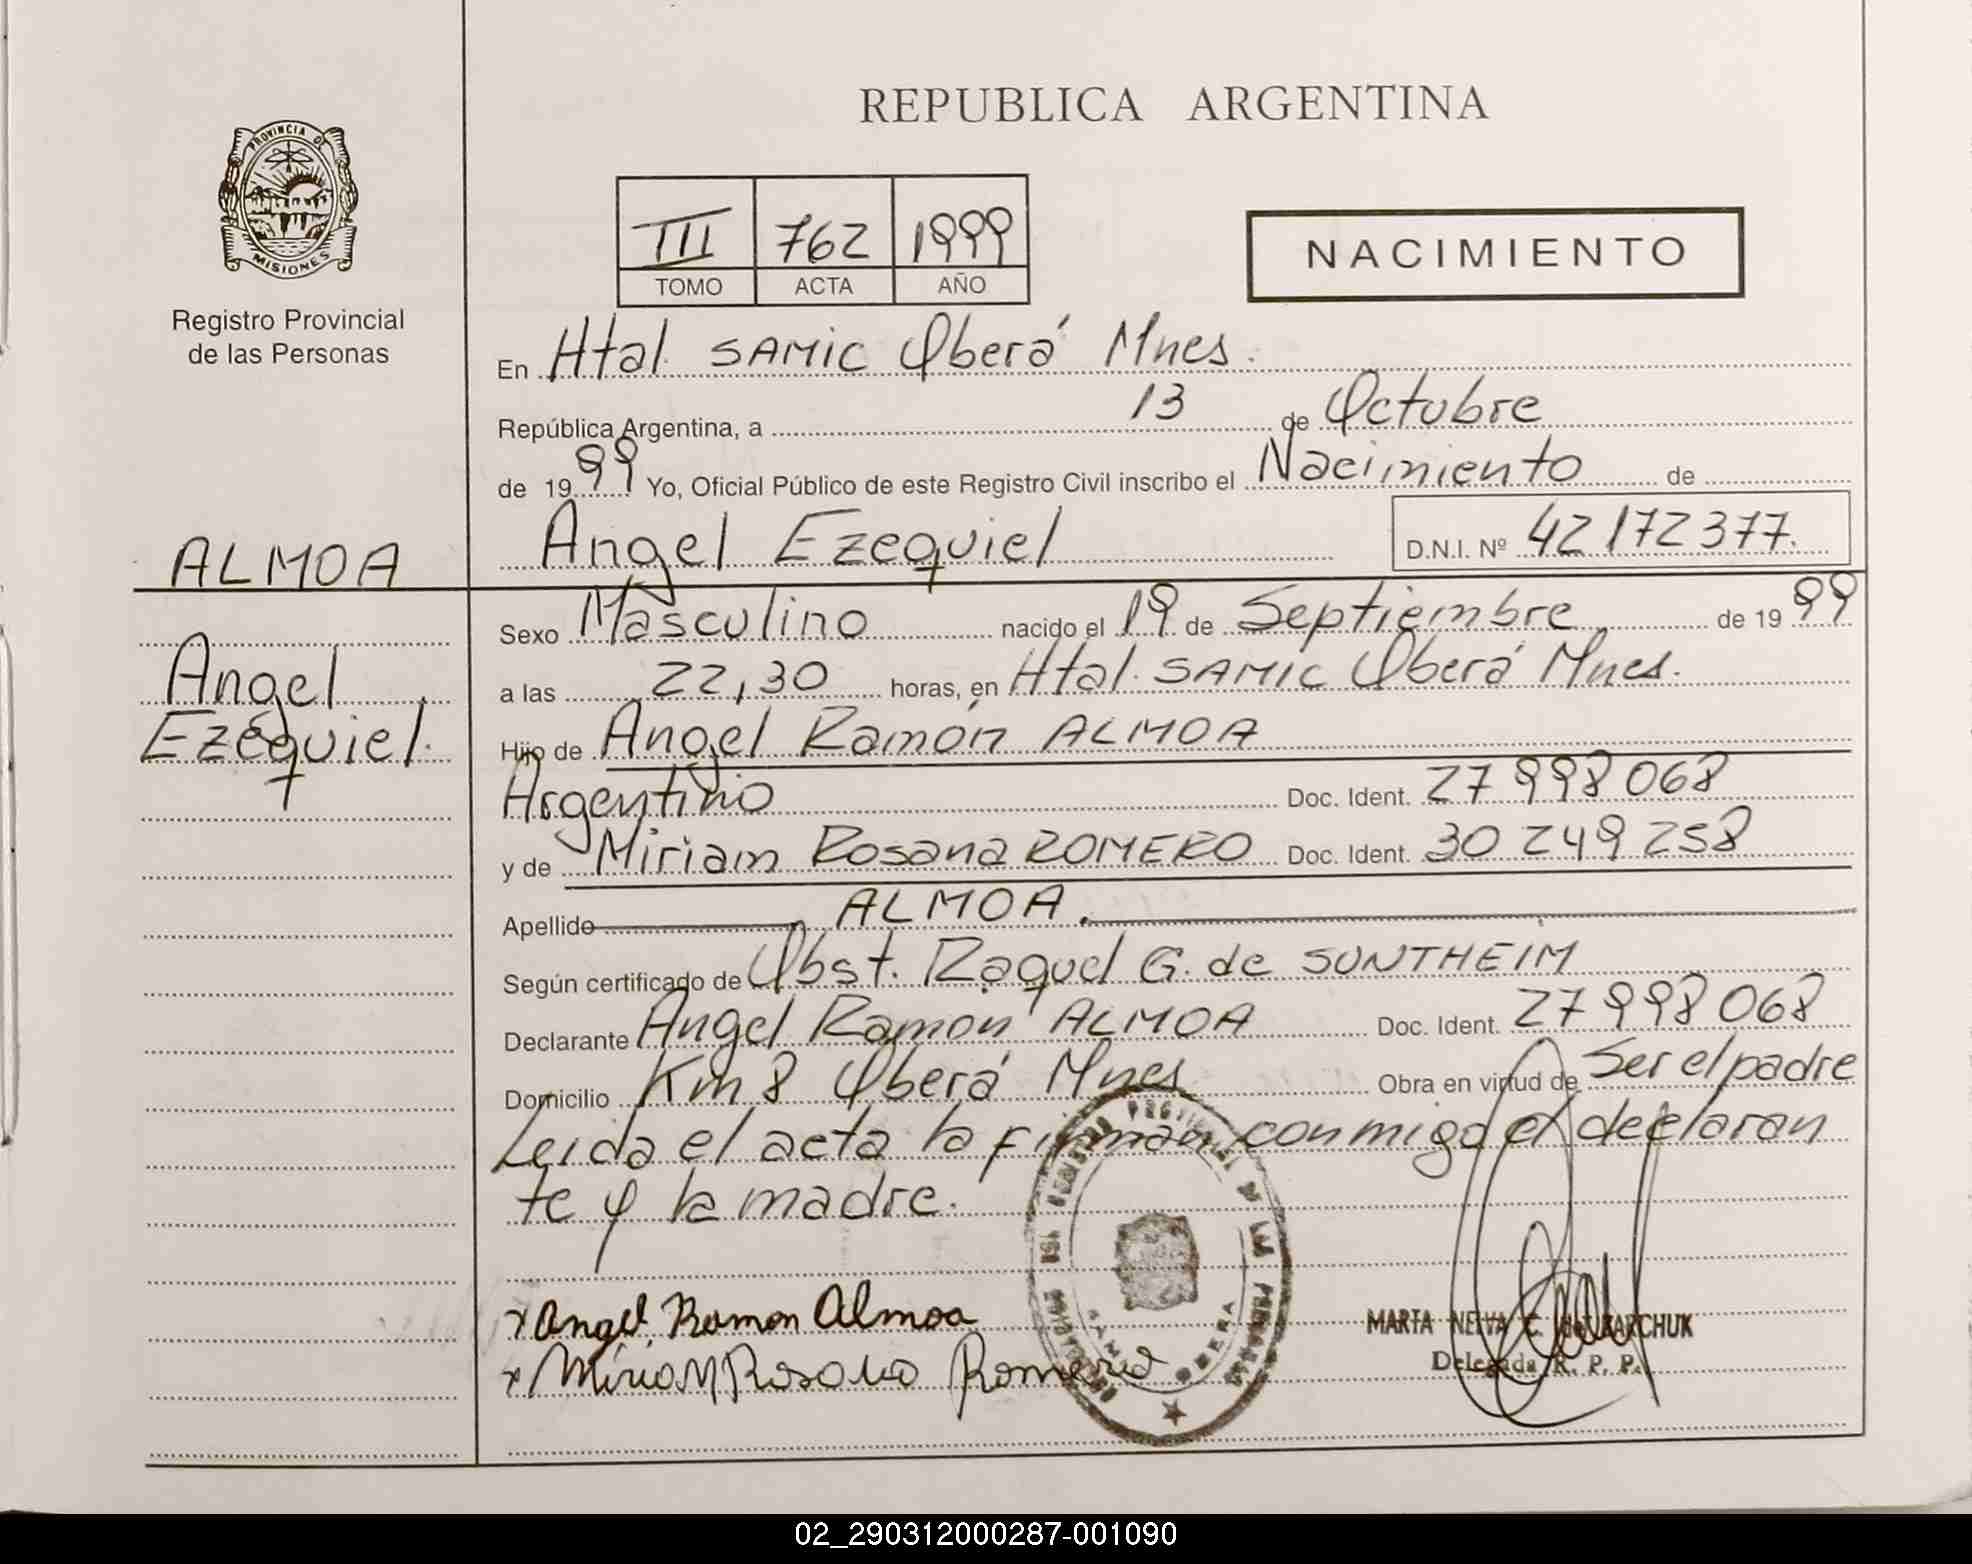 REPUBLICA ARGENTINA
PROVINCIA DE
MISIONES
Registro Provincial
de las Personas
III 762 1999
TOMO ACTA AÑO
NACIMIENTO
En Htal. SAMIC Oberá Mnes.
República Argentina, a 13 de Octubre
de 1999 Yo, Oficial Público de este Registro Civil inscribo el Nacimiento de
ALMOA
Angel Ezequiel D.N.I. Nº 42172377.
Angel
Ezequiel.
Sexo Masculino nacido el 19 de Septiembre de 1999
a las 22,30 horas, en Htal. SAMIC Oberá Mnes.
Hijo de Angel Ramón ALMOA
Argentino Doc. Ident. 27 998 068
y de Miriam Rosana ROMERO Doc. Ident. 30 249 258
Apellido ALMOA.
Según certificado de Obst. Raquel G. de SUNTHEIM
Declarante Angel Ramón ALMOA Doc. Ident. 27 998 068
Domicilio Km 8 Oberá Mnes Obra en virtud de Ser el padre
Leida el acta la firman conmigo el declaran
te y la madre.
x Angel Ramon Almoa
x Miriam Rosana Romero
MARTA NELVA C.
Delegada R. P. P.
OBERA
02_290312000287-001090